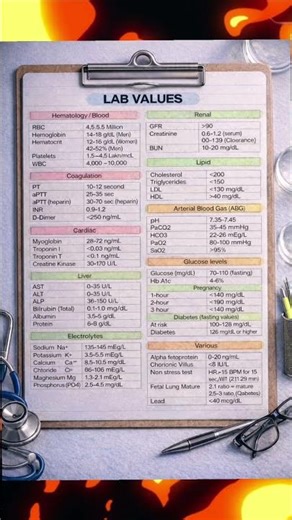 LAB VALUES
Hematology / Blood
RBC 4,5.5.5 Million
Hemoglobin 14-18 g/dL (Men)
Hematocrit 12-16 g/dL (Women)
42-52% (Men)
Platelets 1.5-4.5
WBC 4,000 - 10,000
Coagulation
PT 10-12 second
aPTT 25-35 sec
aPTT (heparin) 30-70 sec (heparin)
INR 0.9-1.2
D-Dimer <250 ng/mL
Cardiac
Myoglobin 28-72 ng/mL
Troponin I <0.03 ng/mL
Troponin T <0.1 ng/mL
Creatine Kinase 30-170 U/L
Liver
AST 0-35 U/L
ALT 0-35 U/L
ALP 36-150 U/L
Bilirubin (Total) 0.1-1.0 mg/dL
Albumin 3.5-5 g/dL
Protein 6-8 g/dL
Electrolytes
Sodium Na⁺ 135-145 mEq/L
Potassium K⁺ 3.5-5.5 mEq/L
Calcium Ca⁺⁺ 8.5-10.5 mg/dL
Chloride Cl⁻ 86-106 mEq/L
Magnesium Mg 1.3-2.1 mEq/L
Phosphorus (PO4) 2.5-4.5 mg/dL
Renal
GFR >90
Creatinine 0.6-1.2 (serum)
90-139 (Clowrance)
BUN 10-20 mg/dL
Lipid
Cholesterol <200
Triglycerides <150
LDL <130 mg/dL
HDL >40 mg/dL
Arterial Blood Gas (ABG)
pH 7.35-7.45
PaCO2 35-45 mmHg
HCO3 22-26 mEg/L
PaO2 80-100 mmHg
SaO2 >95%
Glucose levels
Glucose (mg/dL) 70-110 (fasting)
Hb A1c 4-6%
Pregnancy
1-hour <140 mg/dL
2-hour <190 mg/dL
3 hour <140 mg/dL
Diabetes (fasting values)
At risk 100-128 mg/dL
Diabetes 126 mg/dL or higher
Various
Alpha fetoprotein 0-20 ng/mL
Chorionic Villus <8 IU/L
Non stress test HR.>15 BPM for 15
Fetal Lung Mature 2.1 ratio = mature
2.5-3 ratio
Lead <40 mcg/dL